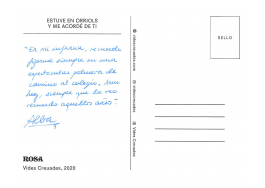 ESTUVE EN ORRIOLS
Y ME ACORDÉ DE TI
"En mi infancia, recuerdo
siempre en una
palmera de
camino al colegio. Aun
hoy, siempre que la veo
recuerdo aquellos años".
Alba
ROSA
Vides Creuades, 2020
videscreuades.com
videscreuades
Vides Creuades
SELLO